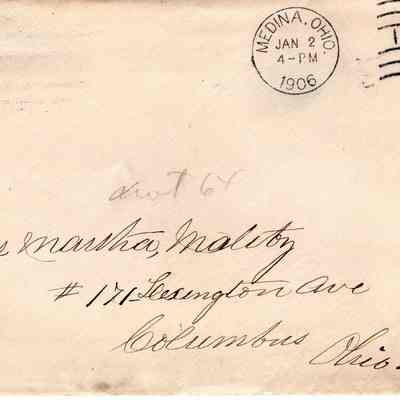 MEDINA, OHIO.
JAN 2
4-PM
1906
64
Martha, Maltby
# 171 Lexington Ave
Columbus
Ohio.